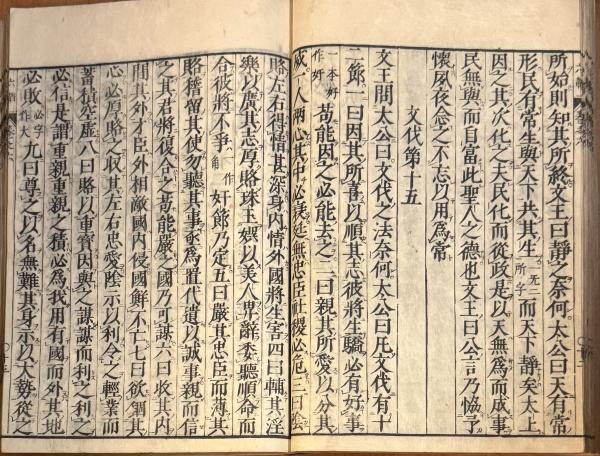 所始則知其所終文王曰靜之奈何太公曰天有常
形民有常生與天下共其生 无所字 而天下靜矣太上
因之其次化之夫民化而從政是以天無為而成事
民無與而自富此聖人之德也文王曰公言乃協予
懷夙夜念之不忘以用為常
文伐第十五
文王問太公曰文伐之法奈何太公曰凡文伐有十
二節一曰因其所喜以順其志彼將生驕必有好事
一本好作奸 苟能因之必能去之二曰親其所愛以分其
威一人兩心其中必衰廷無忠臣社稷必危三曰陰
賂左右得情甚深身內情外國將生害四曰輔其淫
樂以廣其志厚賂珠玉娛以美人卑辭委聽順命而
合彼將不爭 一作角 奸節乃定五曰嚴其忠臣而薄其
賂稽留其使勿聽其事亟為置代遺以誠事親而信
之其君將復合之苟能嚴之國乃可謀六曰收其內
間其外才臣外相敵國內侵國鮮不亡七曰欲錮其
心必厚賂之收其左右忠愛陰示以利令之輕業而
蓄積空虛八曰賂以重寶因與之謀謀而利之利之
必信是謂重親重親之積必為我用有國而外其地
必敗 必字作大 九曰尊之以名無難其身示以大勢從之